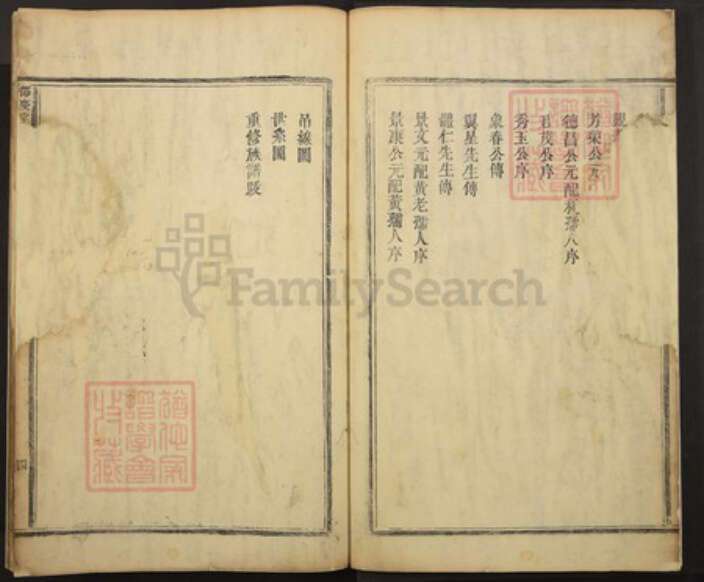 秀榮公
德昌公元配林孺人序
君茂公序
秀玉公序
象春公傳
巽星先生傳
體仁先生傳
景文元配黃老孺人序
景康公元配黃孺人序
吊線圖
世系圖
重修族譜跋
四
FamilySearch
譜學會
特藏